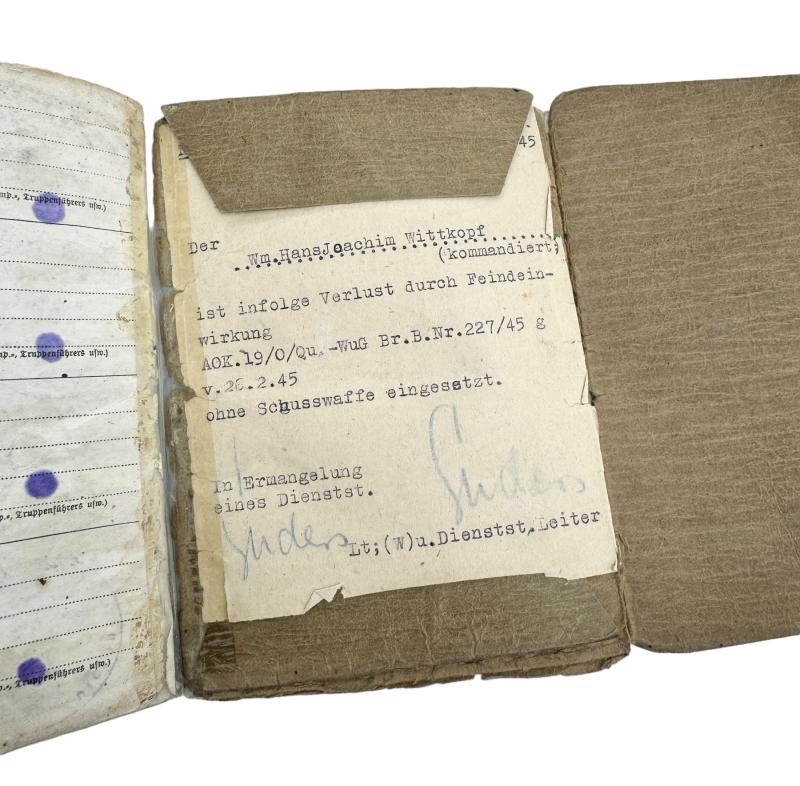 mp., Truppenführers usw.)
mp., Truppenführers usw.)
, Truppenführers usw.)
p., Truppenführers usw.)
45
Der Wm.HansJoachim Wittkopf
(kommandiert;
ist infolge Verlust durch Feindein-
wirkung
AOK.19/O/Qu.-WuG Br.B.Nr.227/45 g
v.26.2.45
ohne Schusswaffe eingesetzt.
In Ermangelung
eines Dienstst.
Lt;(W)u.Dienstst.Leiter